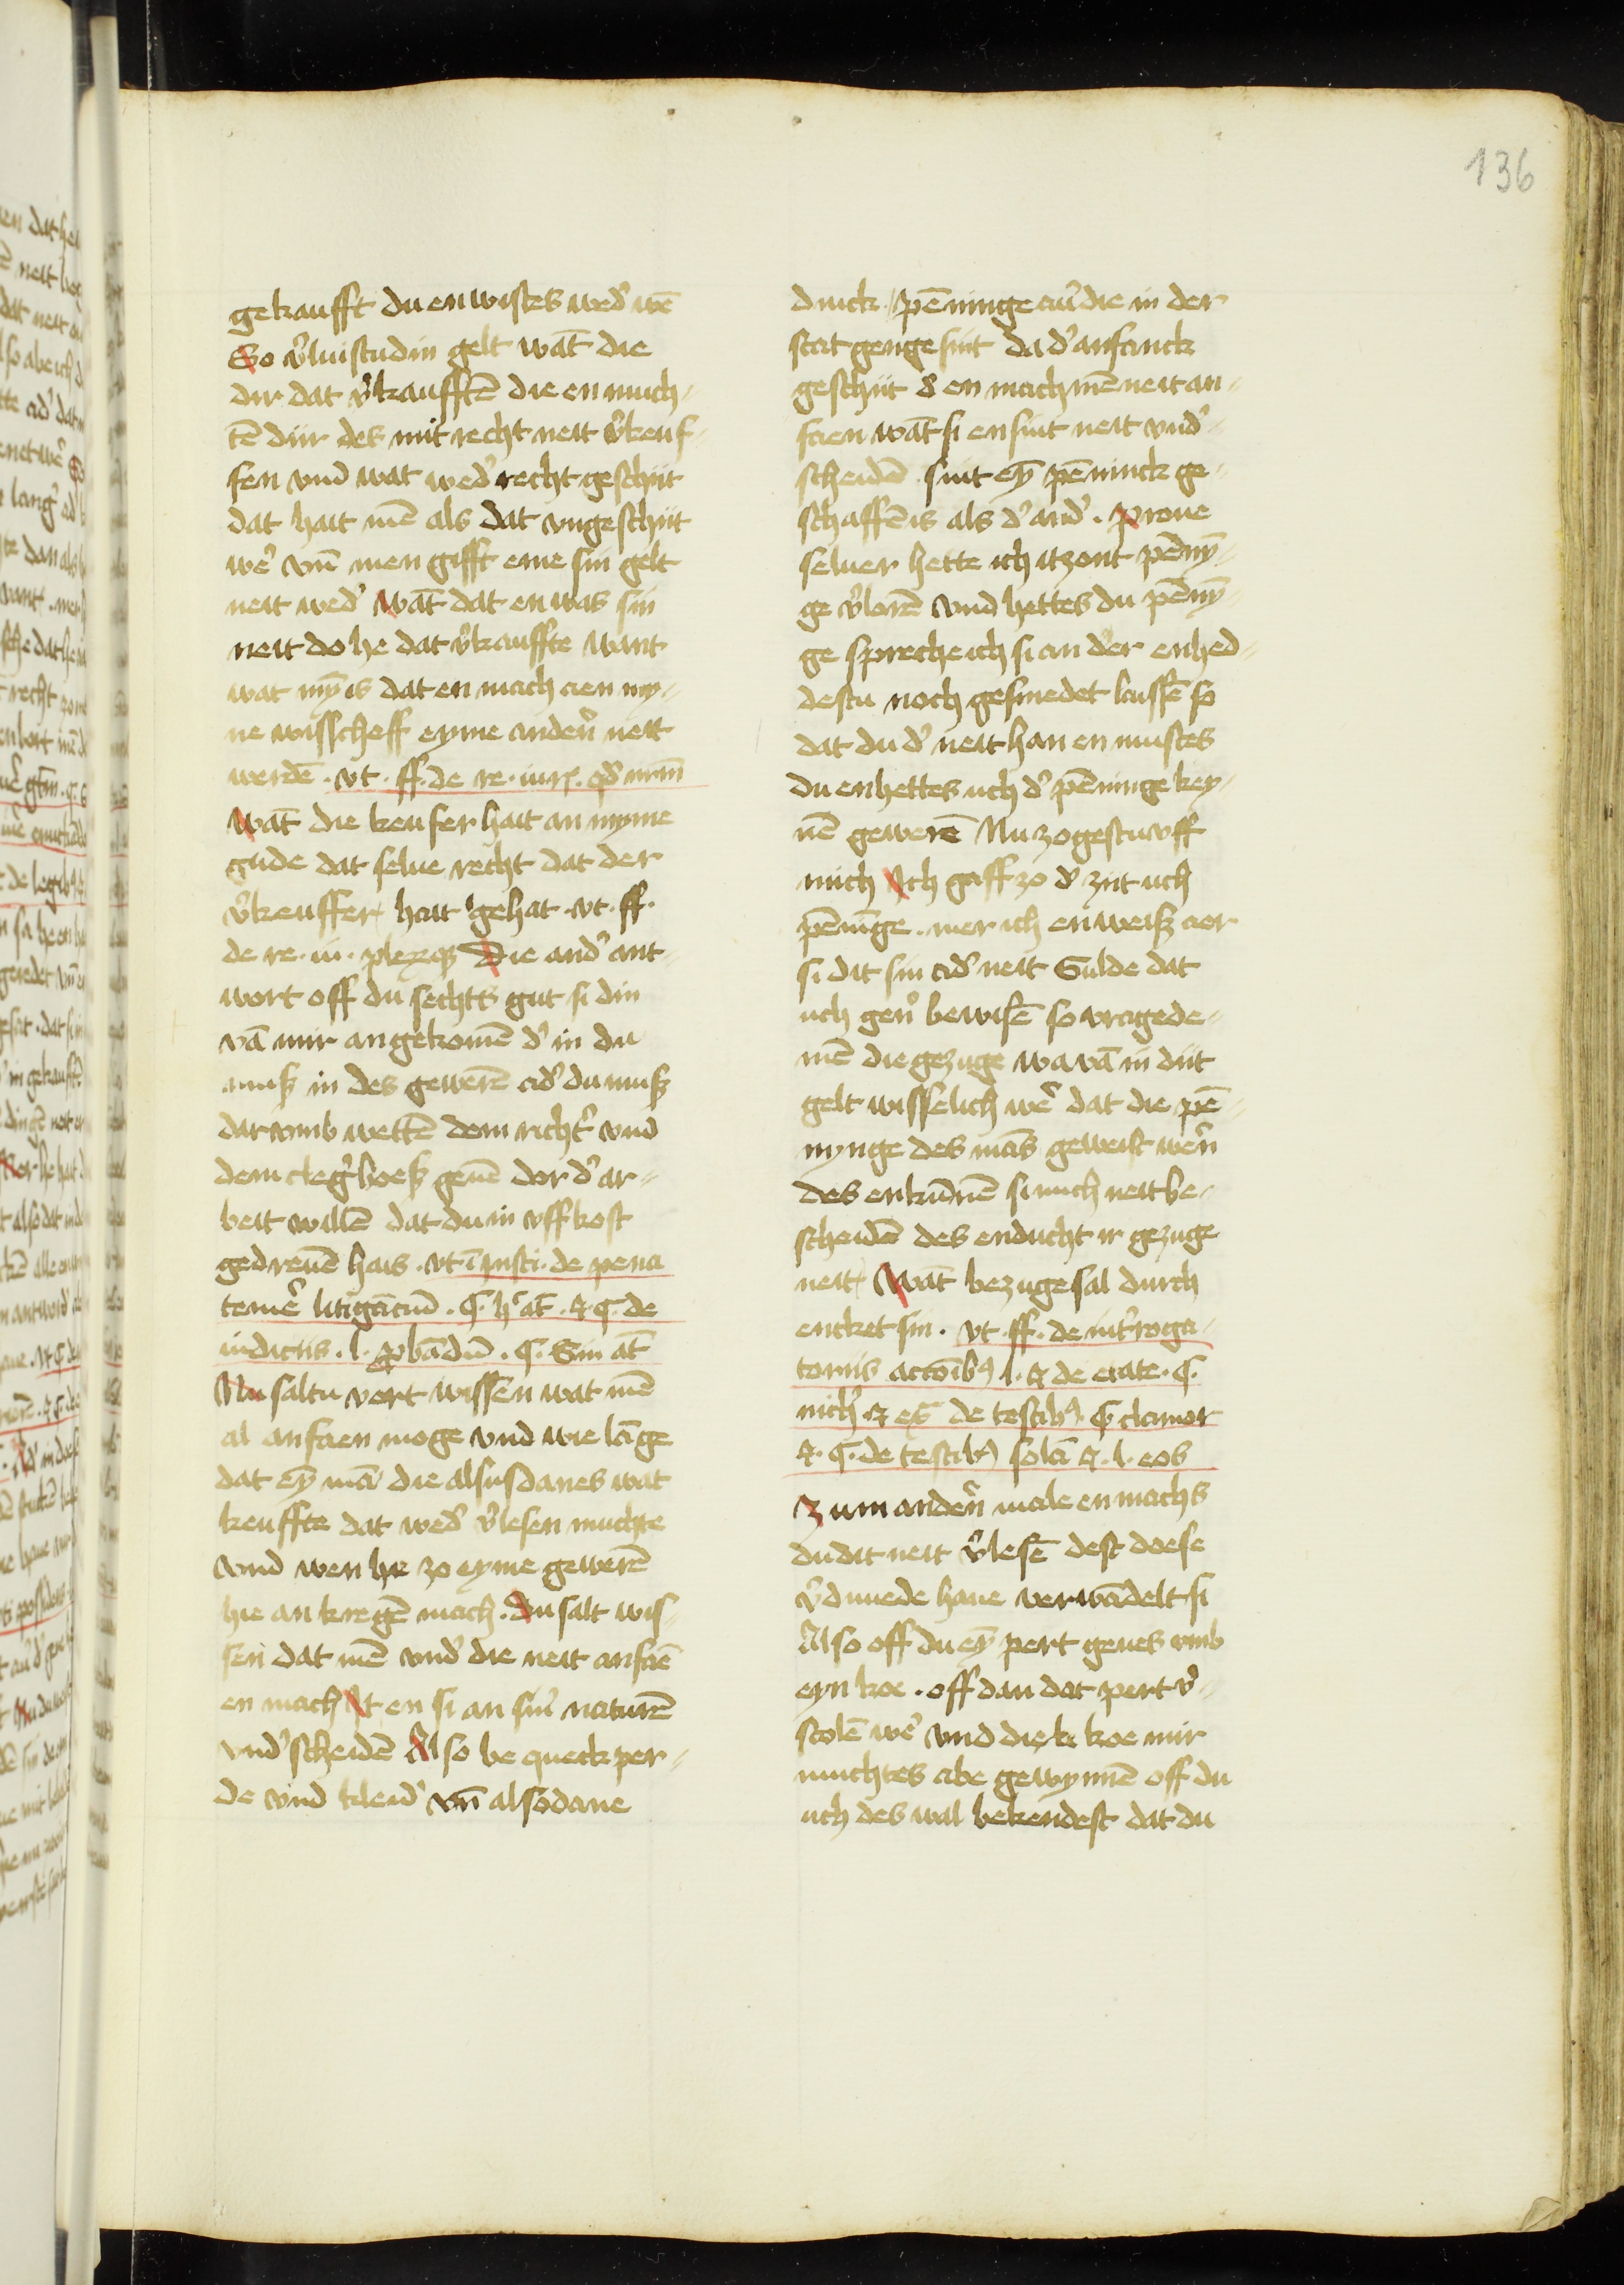 136
gekaufft du en wistes wed' wē
So v'luistu din gelt wāt die
dir dat v'kaufftē die en much-
tē diir des mit recht neit v'keuf-
fen vnd wat wed' recht geschiit
dat hait mē als dat vngeschiit
we' vn̄ men gifft eme sin gelt
neit wed' wāt dat en was sin
neit do he dat v'kauffte want
wat mȳ is dat en mach aen my-
ne wisscheff eyme anden' neit
werdē . vt . ff . de re . iur . qd' nrm̄
wāt die keufer hait an myme
gude dat selue recht dat der
v'keuffer hait gehat . vt . ff .
de re . iu . plerq3 Die and' ant-
wort off du sechts gut si din
vā mir an gekomē d' in du
mus in des gewerē ad' du mus
dar vmb wettē dem richt' vnd
dem cleg' boeß geuē dor d' ar-
beit willē dat du in vff kost
gedreuē hais . vt ī insti . de pena
teme' litigāciū . ¶ . h' at̄ . & ¶ de
iudiciis . l . pbādū . ¶ . Sin at̄
Nu saltu vort wissen wat mē
al anfaen moge vnd wie lāge
dat eȳ mā die alsusdanes wat
keuffte dat wed' v'lesen muchte
vnd wen he zo eyme gewerē
hie an kregē mach . Du salt wis-
sen dat mē vnd' die neit anfaē
en mach It en si an sin' naturē
vnd'scheidē Also be queck per-
de vnd kleid' vn̄ alsodane
duck . pēninge au' die in der
stat genge sint da d' anfanck
geschiit d' en mach mē neit an-
faen wāt si en sint neit vnd'-
scheidē sint eȳ pēninck ge-
schaffē is als d' and' . proue
seluer hette ich itzont pēnȳ-
ge v'lorē vnd hettes du pēnȳ-
ge spreche ich si an der en hed-
destu noch gesmedet laissē so
dat du d' neit han en mustes
du en hettes uch d' pēninge key-
nē gewerē Nu zogestu vff
mich Ich gaff zo d' ziit uch
pēnīge . mer ich en weiß aer
si dit sin ad' neit Sulde dat
uch gen' bewisē so vragede-
mē die gezuge wa vā in diit
gelt wisselich we' dat die pē-
nynge des mās geweist wern'
des en kūnē si uuch neit be-
scheidē des en ducht ir gezuge
neit wāt bezuge sal durch
encket sin . vt . ff . de int'roga-
toriis actōib9 l . & de etate . ¶ .
nich' & ex̄ de testib9 . ¶ clamor
& . ¶ . de testib9 solā & . l . eos
Zum anden' male en machs
du dit neit v'lesē dest doese
v'dmede haue verwādelt si
Also off du eȳ pert geues vmb
eyn koe . off dan dat pert v'-
stolē we' vnd die koe mir
muchtes abe gewynnē off du
uch des wal bekendest dat du